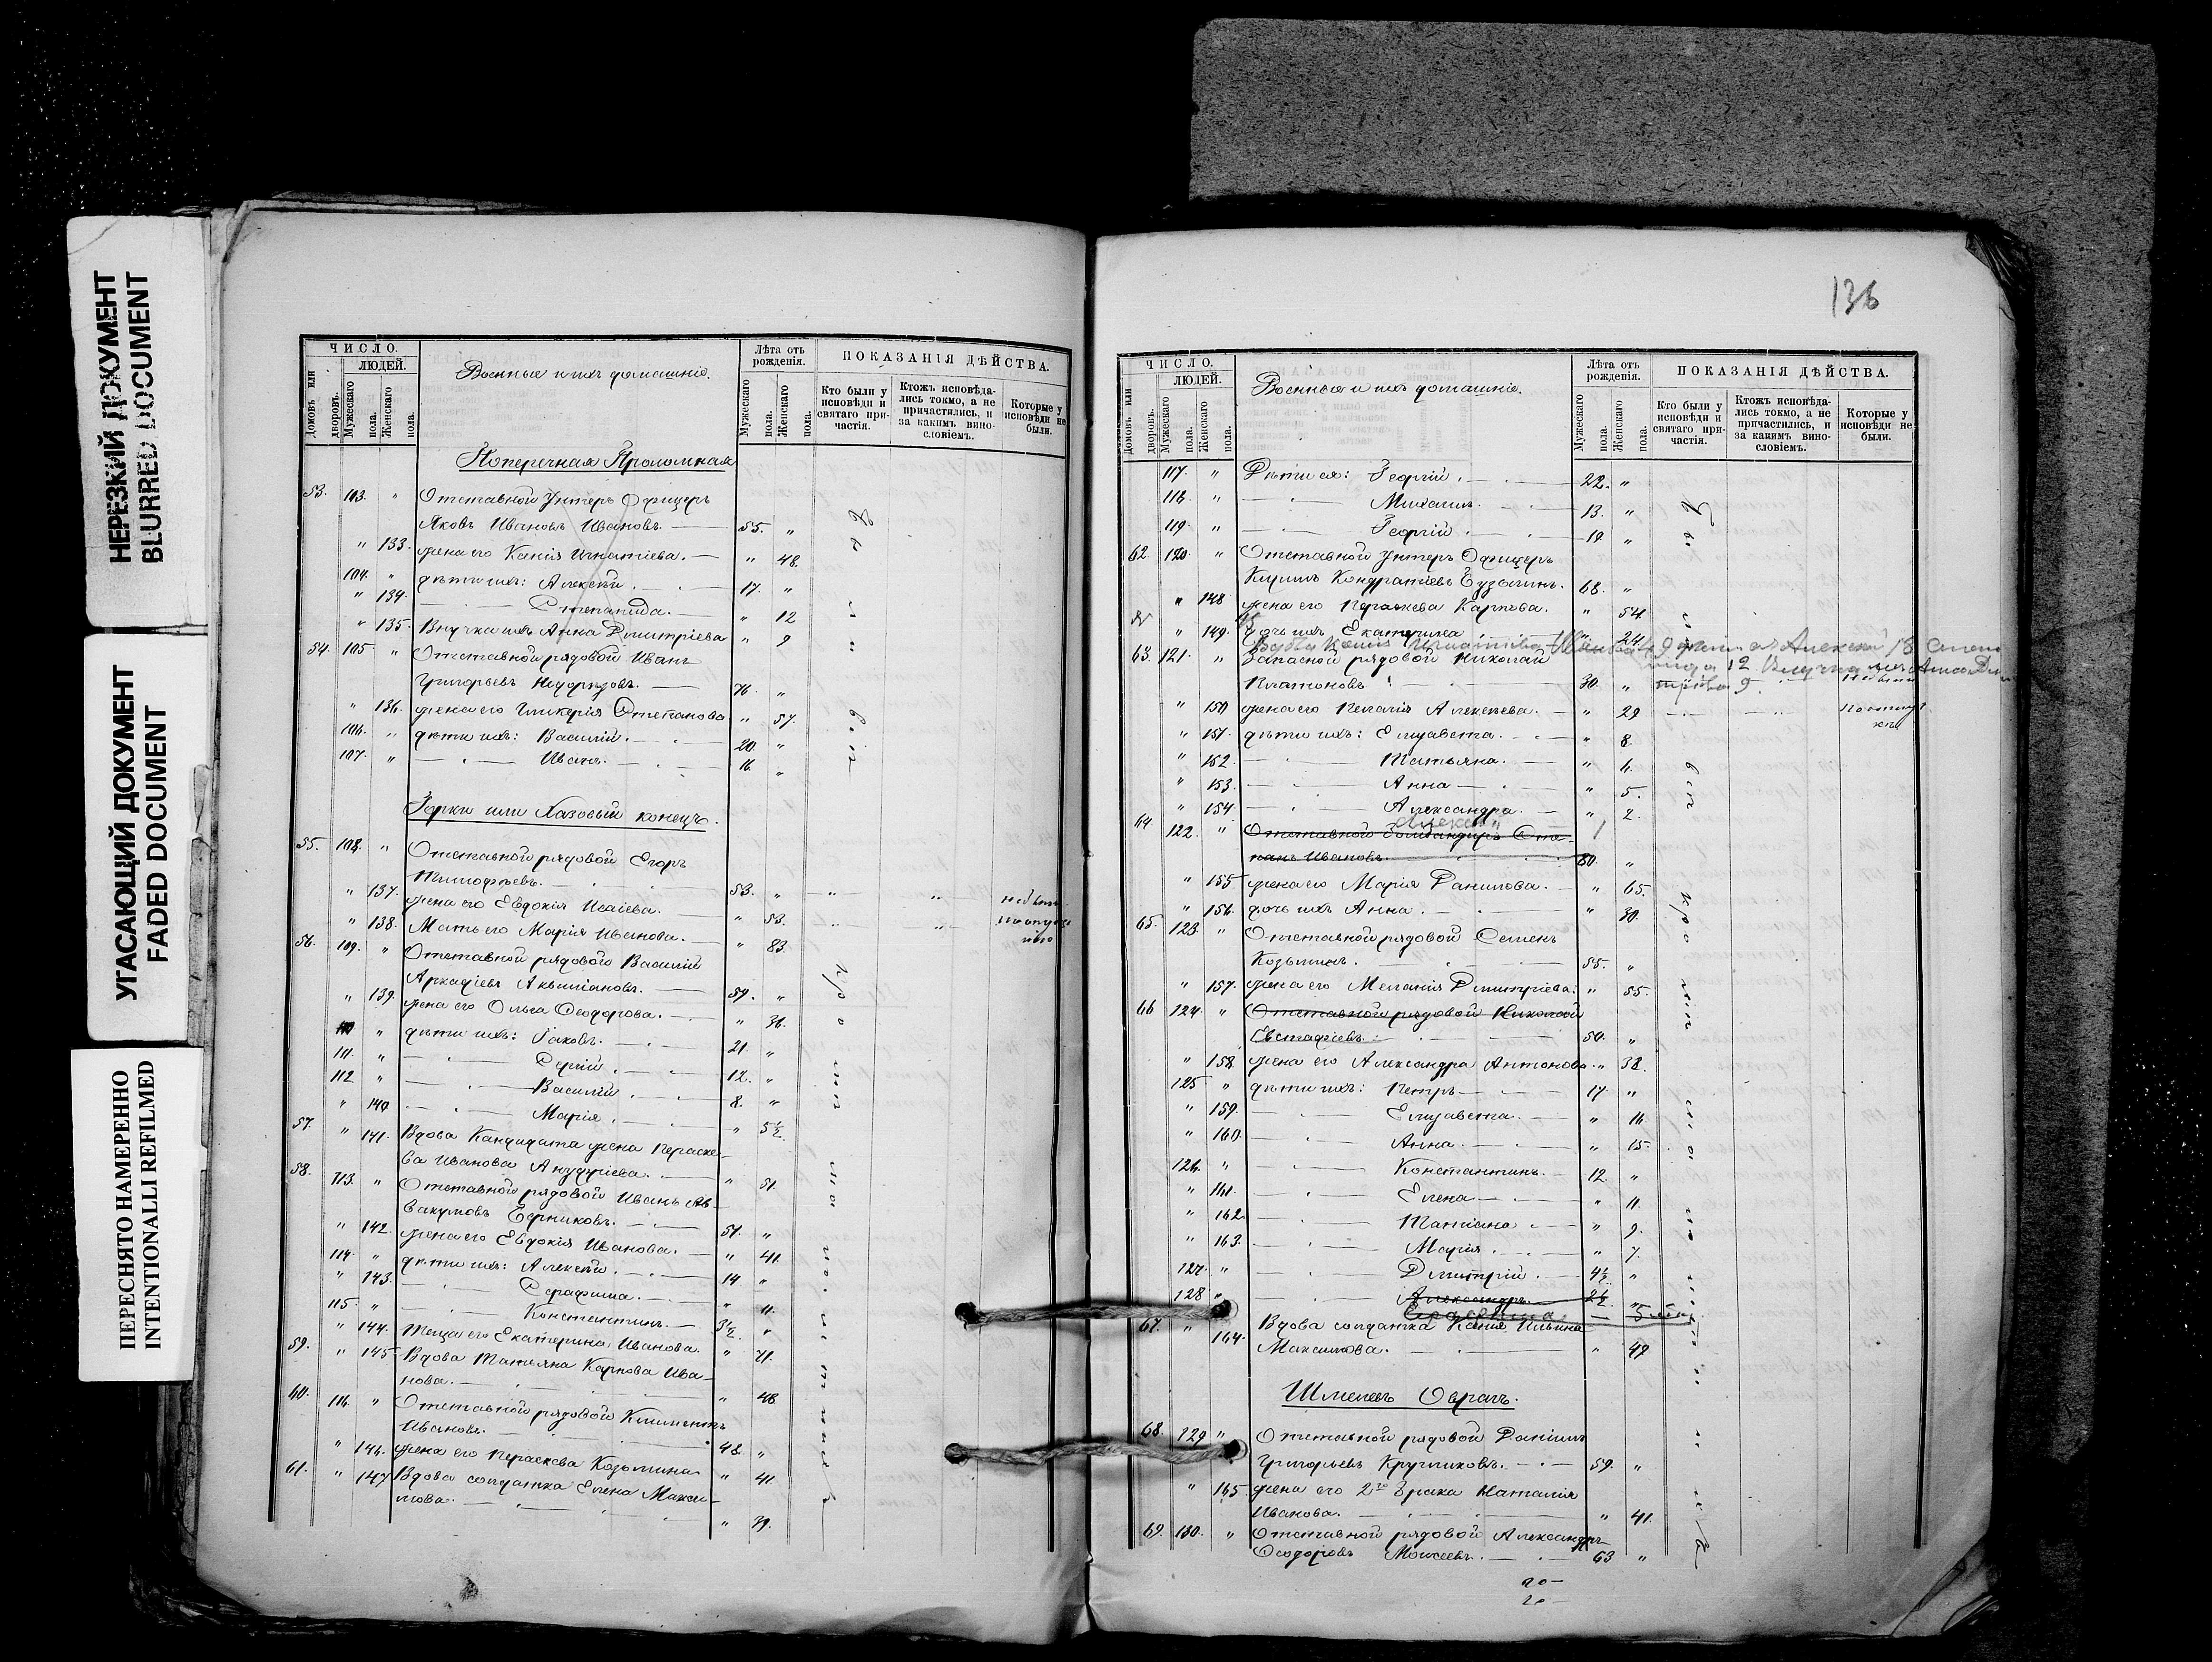 НЕРЕЗКИЙ ДОКУМЕНТ
BLURRED DOCUMENT
УГАСАЮЩИЙ ДОКУМЕНТ
FADED DOCUMENT
ПЕРЕСНЯТО НАМЕРЕННО
INTENTIONALLI REFILMED
ЧИСЛО.
ЛЮДЕЙ.
Домовъ или дворовъ.
Мужескаго пола.
Женскаго пола.
Военные и ихъ домашніе.
Лѣта отъ рожденія.
Мужескаго пола.
Женскаго пола.
ПОКАЗАНІЯ ДѢЙСТВА.
Кто были у исповѣди и святаго причастія.
Ктожъ исповѣдались токмо, а не причастились, и за какимъ винословіемъ.
Которые у исповѣди не были.
Поперечная Проломная
53. 103. " Отставной Унтеръ Офицеръ
Яковъ Ивановъ Ивановъ. 55. "
" 133. жена его Ксенія Игнатіева. " 48.
104. " дѣти ихъ: Алексѣй. 17. "
" 134. Степанида. " 12
" 135. Внучка ихъ Анна Димитріева " 9
54. 105. " Отставной рядовой Иванъ
Григорьевъ 76. "
" 136. жена его Гликерія Степанова " 57.
106. " дѣти ихъ: Василій. 20. "
107. " Иванъ. 16. "
Горки или Хазовый конецъ.
55. 108. " Отставной рядовой Егоръ
Тимофѣевъ. 53. " " "
" 137. жена его Евдокія Исаіева. " 53. " "
" 138. Мать его Марія Иванова. " 83.
56. 109. " Отставной рядовой Василій
Аркадіевъ Аквиліановъ. 59. "
" 139. жена его Ольга Ѳеодорова. " 36.
110 " дѣти ихъ: Іаковъ. 21. "
111. " Сергій. 12. "
112 " Василій. 8. "
" 140 Марія. " 5½.
57. " 141. Вдова Кандидата жена Параске-
ва Иванова Ануфріева. " 51.
58. 113. " Отставной рядовой Иванъ Ав-
вакумовъ 51. "
" 142. жена его Евдокія Иванова. " 41.
114. " дѣти ихъ: Алексѣй. 14 "
" 143. Серафима. " 11.
115. " Константинъ. 3½. "
" 144. Теща его Екатерина Иванова. " 71.
59. " 145. Вдова Татьяна Карпова Ива-
нова. " 48
60. 116. " Отставной рядовой Климентъ
Ивановъ. 48. "
" 146. жена его Параскева Козьмина " 41.
61. " 147 Вдова солдатка Елена Макси-
мова. " 39.
136
ЧИСЛО.
ЛЮДЕЙ.
Домовъ или дворовъ.
Мужескаго пола.
Женскаго пола.
Военные и ихъ домашніе.
Лѣта отъ рожденія.
Мужескаго пола.
Женскаго пола.
ПОКАЗАНІЯ ДѢЙСТВА.
Кто были у исповѣди и святаго причастія.
Ктожъ исповѣдались токмо, а не причастились, и за какимъ винословіемъ.
Которые у исповѣди не были.
117. " Дѣти ея: Георгій. 22. "
118. " Михаилъ. 13. "
119. " Георгій. "
62. 120. " Отставной Унтеръ Офицеръ
Кириллъ Кондратіевъ 68. "
" 148 жена его Параскева Карпова. " 54
" 149. дочь ихъ Екатерина " 24
Вдова Ксенія Игнатіева Иванова 49 дѣти ея Алексѣй 18 Степа
нида 12 Внучка ихъ Анна Дим
63. 121. " Запасной рядовой Николай
Платоновъ 30. "
" 150 жена его Пелагія Алексѣева. " 29
" 151. дѣти ихъ: Елизавета. " 8.
" 152. Татьяна. " 6.
" 153. Анна " 5.
" 154. Александра. " 2.
64 122. " Отставной Бомбандиръ Сте-
панъ Ивановъ. 80. "
" 155 жена его Марія Данилова. " 65.
" 156. дочь ихъ Анна. " 30.
65. 123. " Отставной рядовой Семенъ
Козьминъ. 55. "
" 157. жена его Меланія Димитріева. " 55.
66 124. " Отставной рядовой Николай
Евстафіевъ. 50. "
" 158. жена его Александра Антонова " 38.
125 " дѣти ихъ: Петръ 17 "
" 159. Елизавета. " 16.
" 160. Анна. " 15.
126. " Константинъ. 12. "
" 161. Елена " 11.
" 162. Татіана " 9.
" 163. Марія. " 7.
127. " Димитрій. 4½ "
128 " Александръ. 2½. "
67. " 164. Вдова солдатка Ксенія Ильина
Максимова. " 49
Шмелевъ Оврагъ.
68. 129 " Отставной рядовой Даніилъ
Григорьевъ Кругликовъ. 59. "
" 165 жена его 2го брака Наталія
Иванова. " 41.
69. 130. " Отставной рядовой Александръ
Ѳеодоровъ Моисеевъ. 63 "